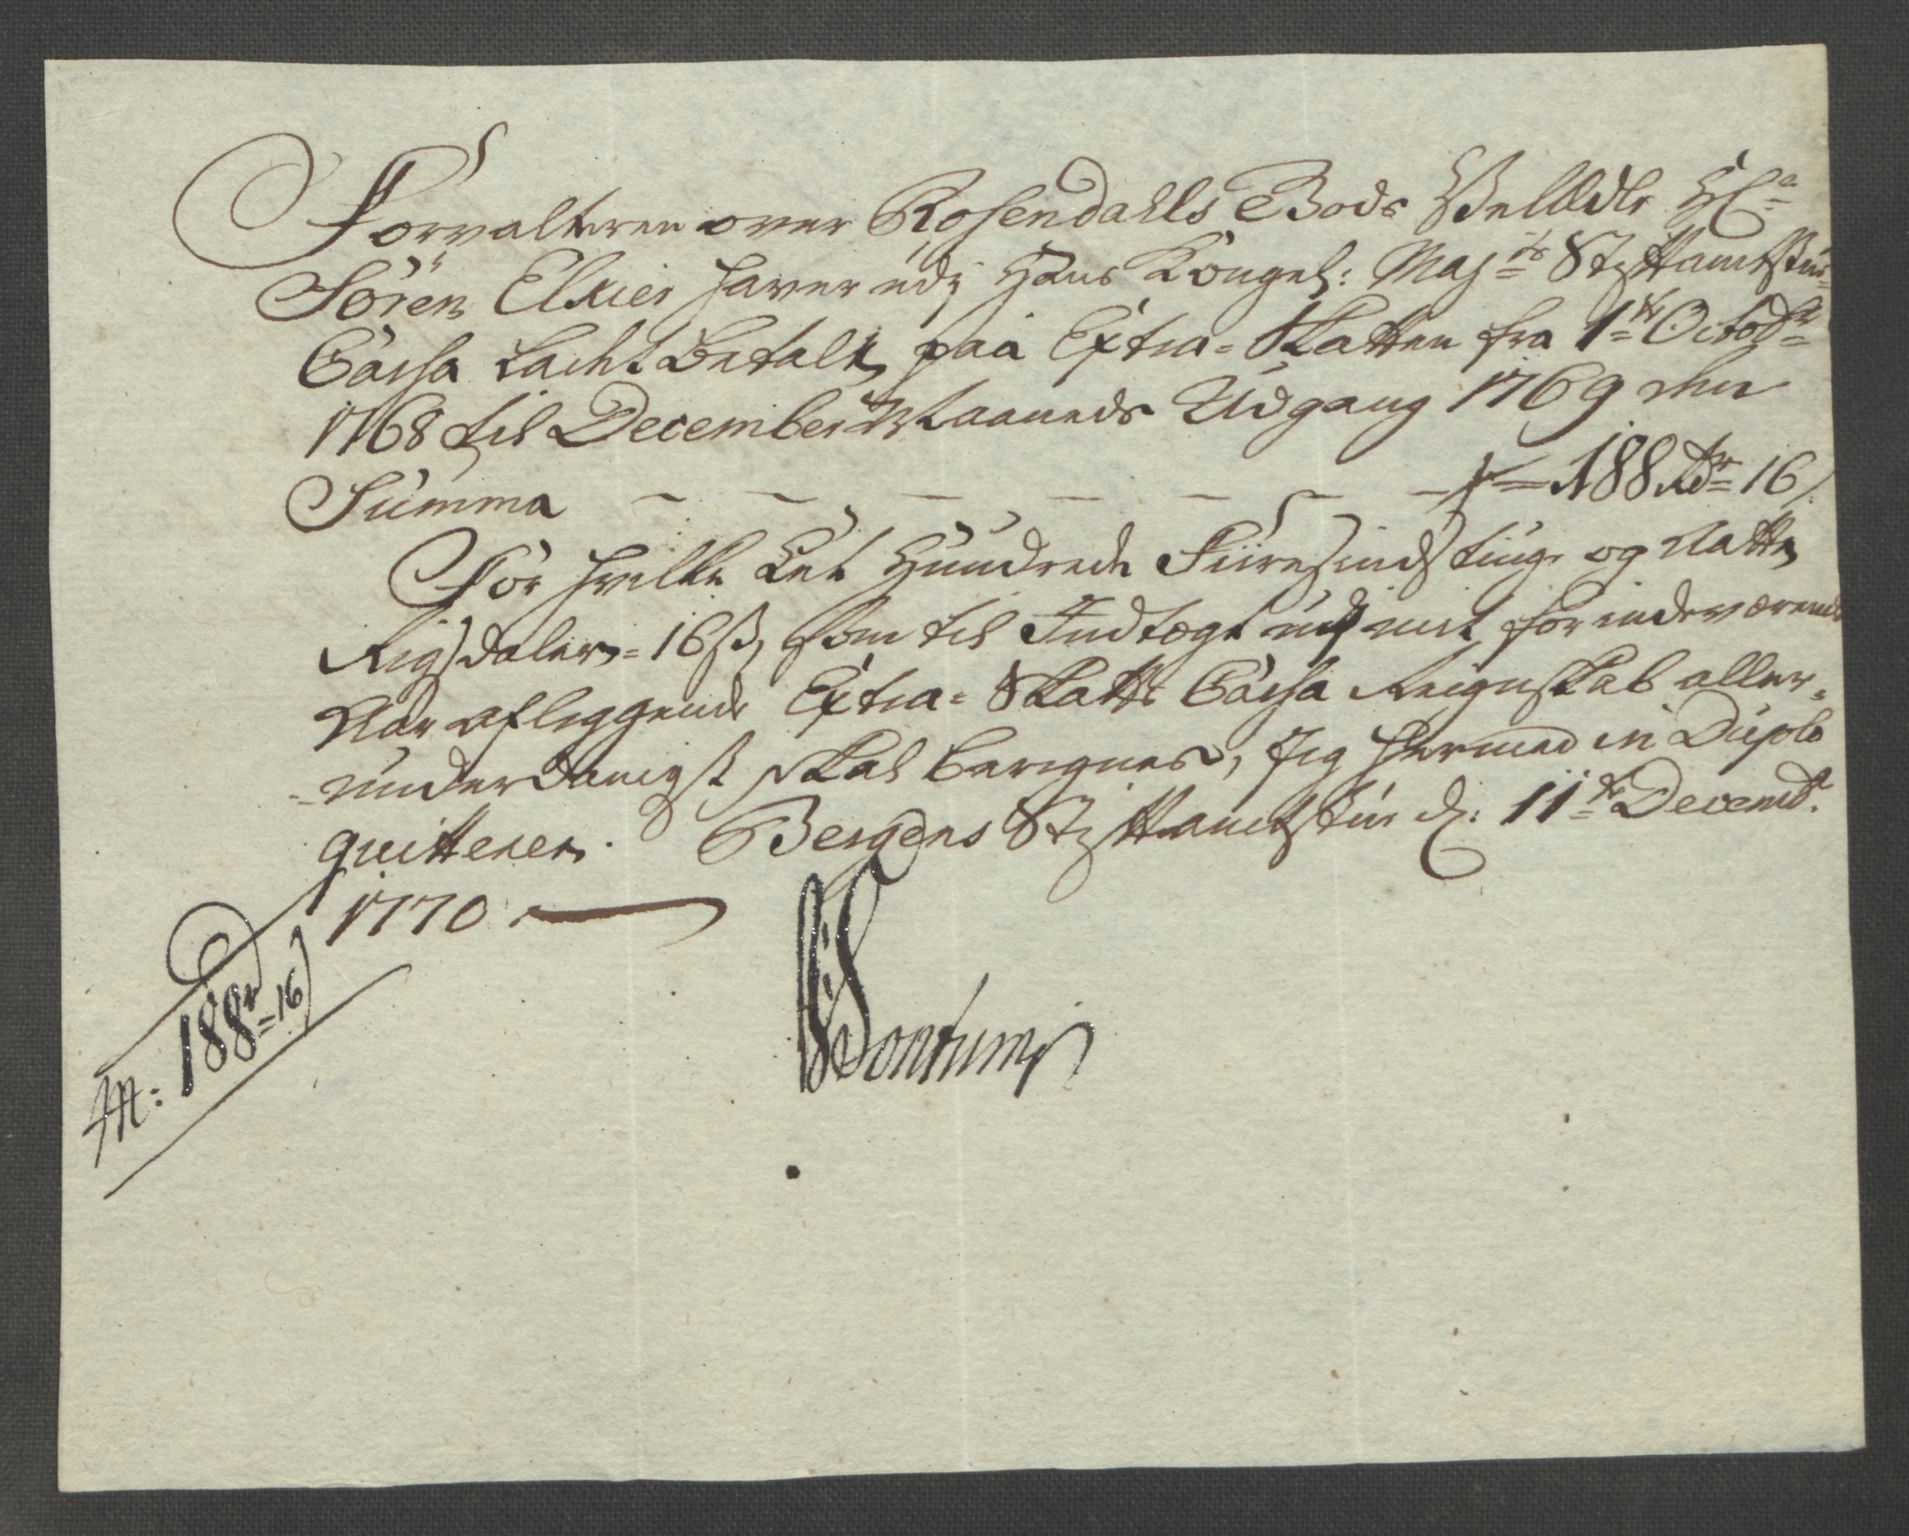 Forvalteren over Rosendahls Gods Velædle Hr
Søren Elster haver udj Hans Kongel: Majts Stiftamtstue
Cassa ladet betale, paa Extra-Skatten fra 1te Octobr
1768 til December Maaneds Udgang 1769 den
Summa — — — — — — — 188 Rdr 16 s.
For hvilke Eet Hundrede Fiiresindstiuge og Aatte
Rigsdaler 16 s, som til Indtægt udj mit for indeværende
Aar aflæggende Extra-Skatts Cassa Reignskab aller-
-underdanigst skal beregnes, Jeg hermed in Duplo
qvitterer. Bergens Stiftamtstue d: 11te Decembr
1770
188r = 16
Fontum